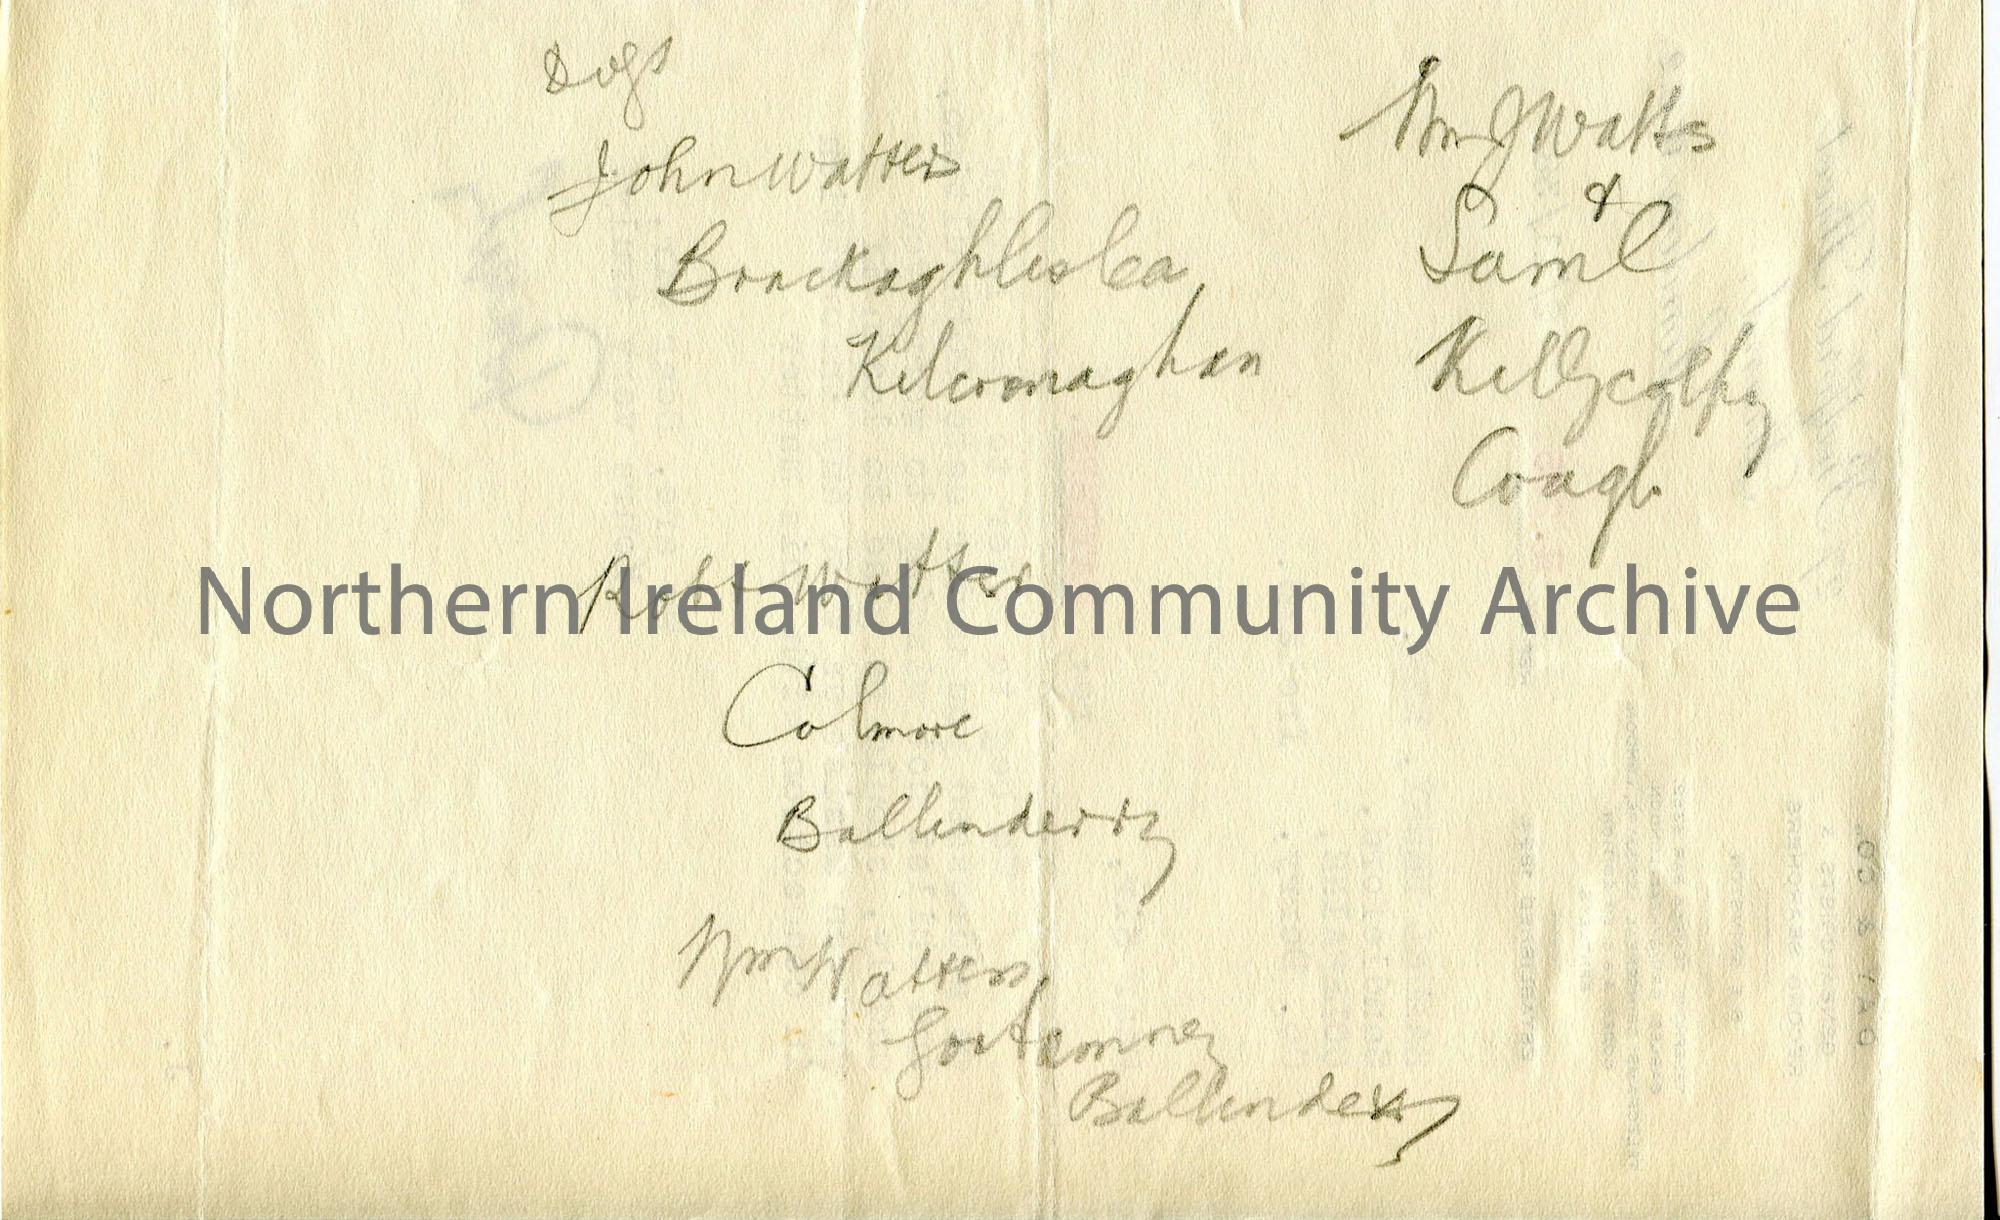 Dogs
John Watters
Brackaghlislea
Kilcronaghan
Robt Watters
Colmore
Ballinderry
Wm Watters
Gortamney
Ballinderry
Wm J Watts
&
Saml
Killygolpy
Coagh
Northern Ireland Community Archive